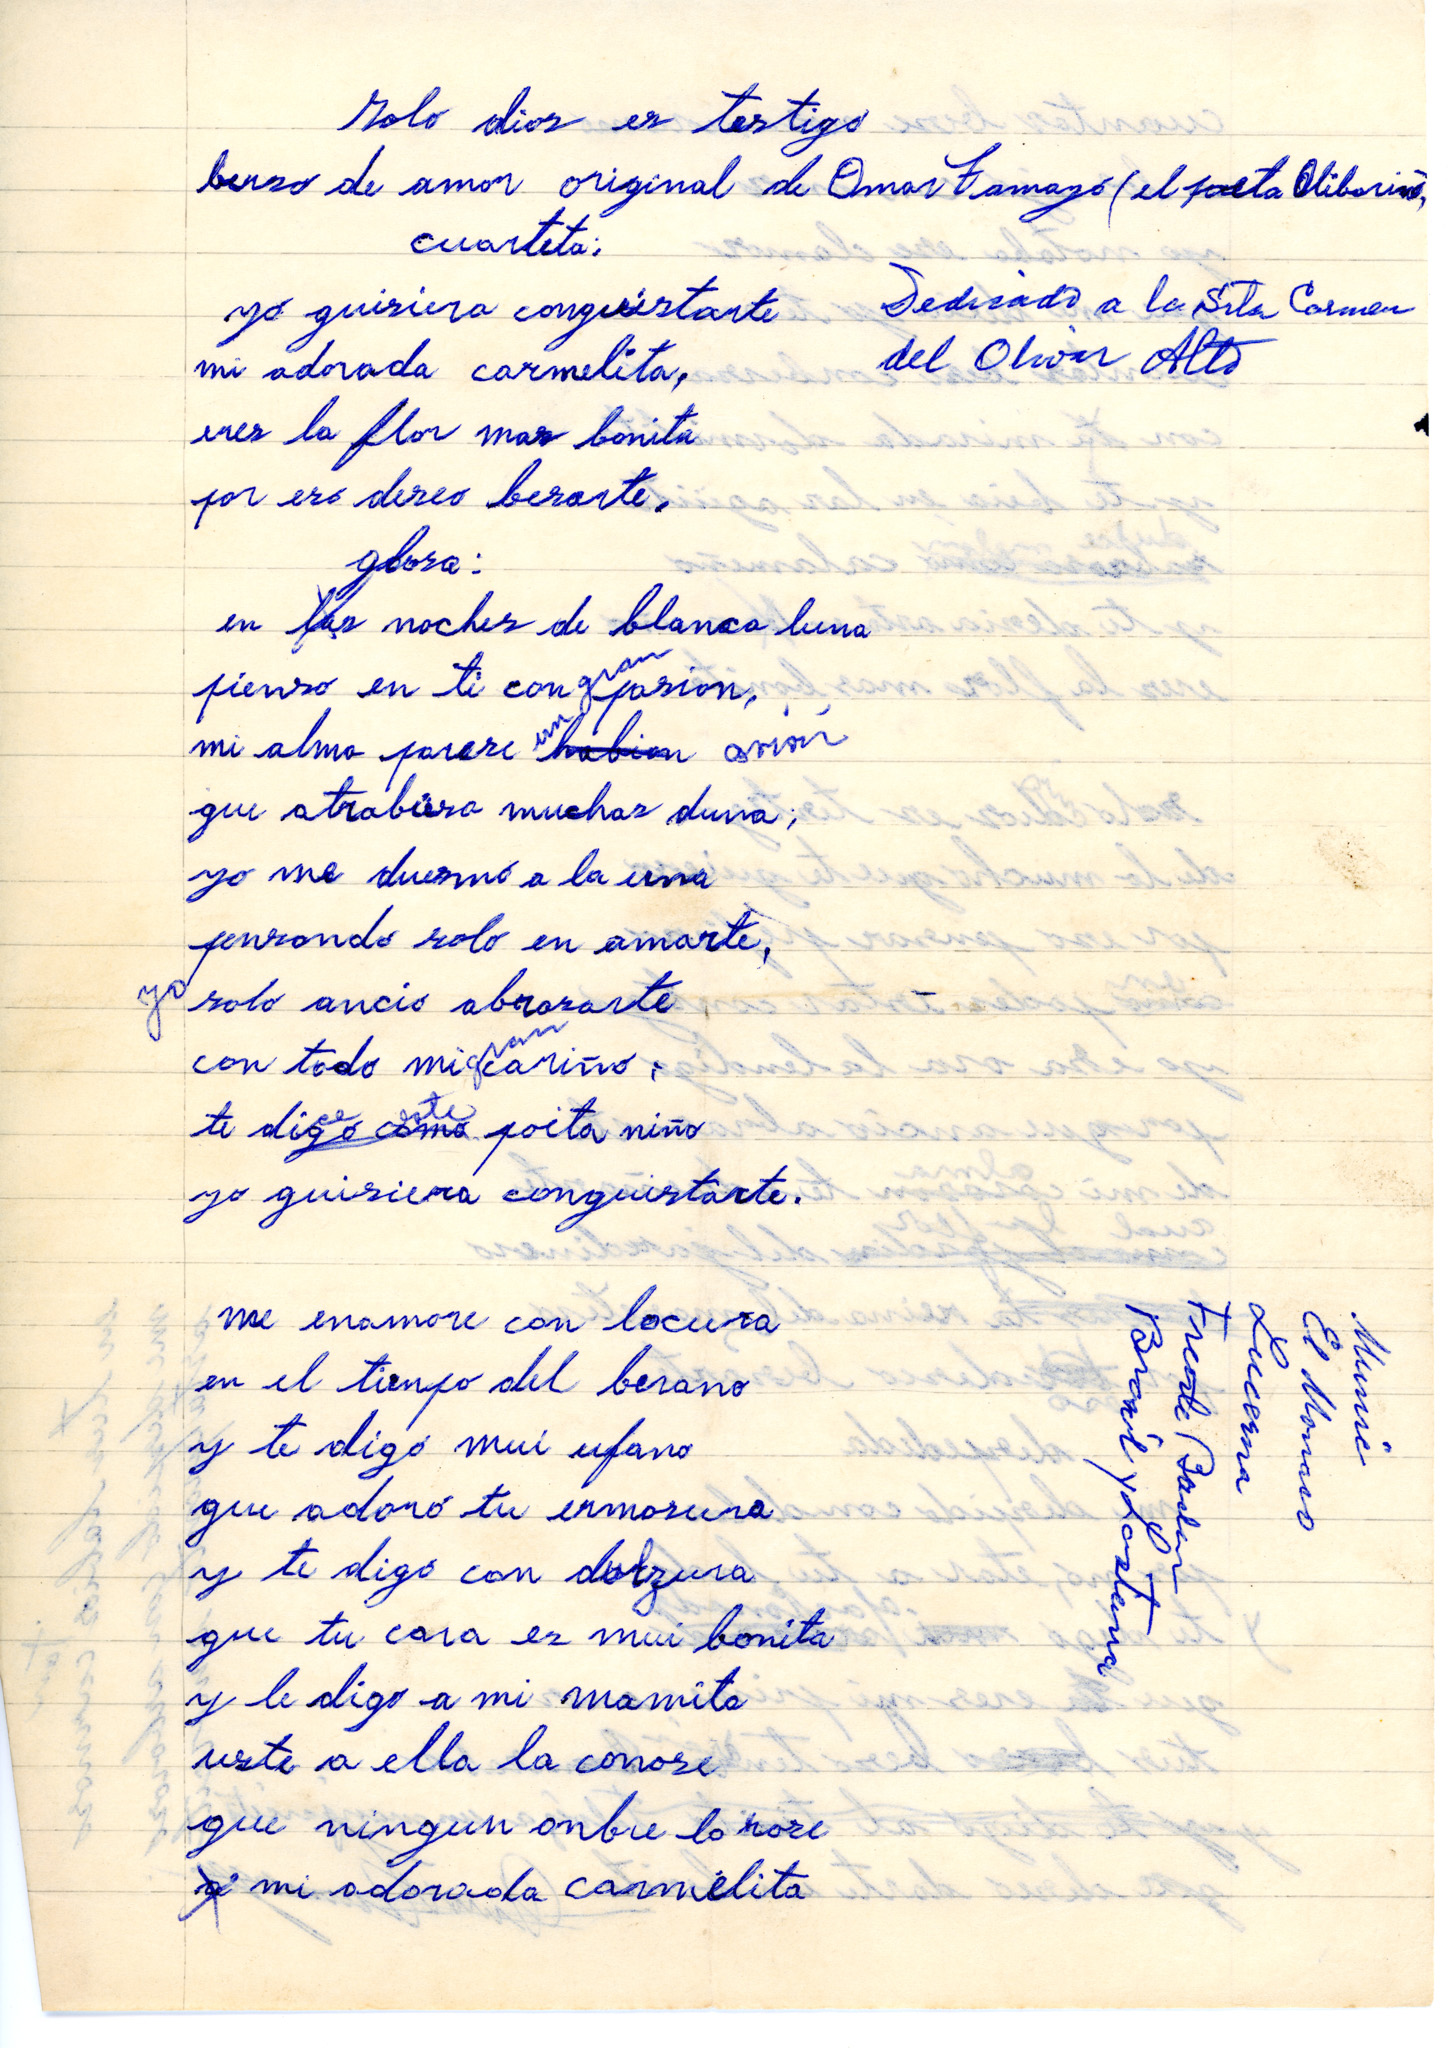 solo dios es testigo
berso de amor original de Omar Tamayo (el poeta Olibarino,
cuarteta:
yo quisiera conquistarte
Dedicado a la Srta Carmen
mi adorada carmelita,
del Olivar Alto
eres la flor mas bonita
por eso deseo besarte.
glosa:
en las noches de blanca luna
pienso en ti con gran pasion,
mi alma parese un habion avión
que atrabiesa muchas duna,
yo me duermo a la una
pensando solo en amarte,
yo solo ancio abrasarte
con todo mi gran cariño,
te digo como este poita niño
yo quisiera conquistarte.
me enamore con locura
en el tienpo del berano
y te digo mui ufano
que adoro tu ermosura
y te digo con dulzura
que tu cara es mui bonita
y le digo a mi mamita
uste a ella la conose
que ningun onbre la rose
a mi adorada carmelita
Munic
El Monaco
Lucerna
Frente Baden
Brasil y Lostana